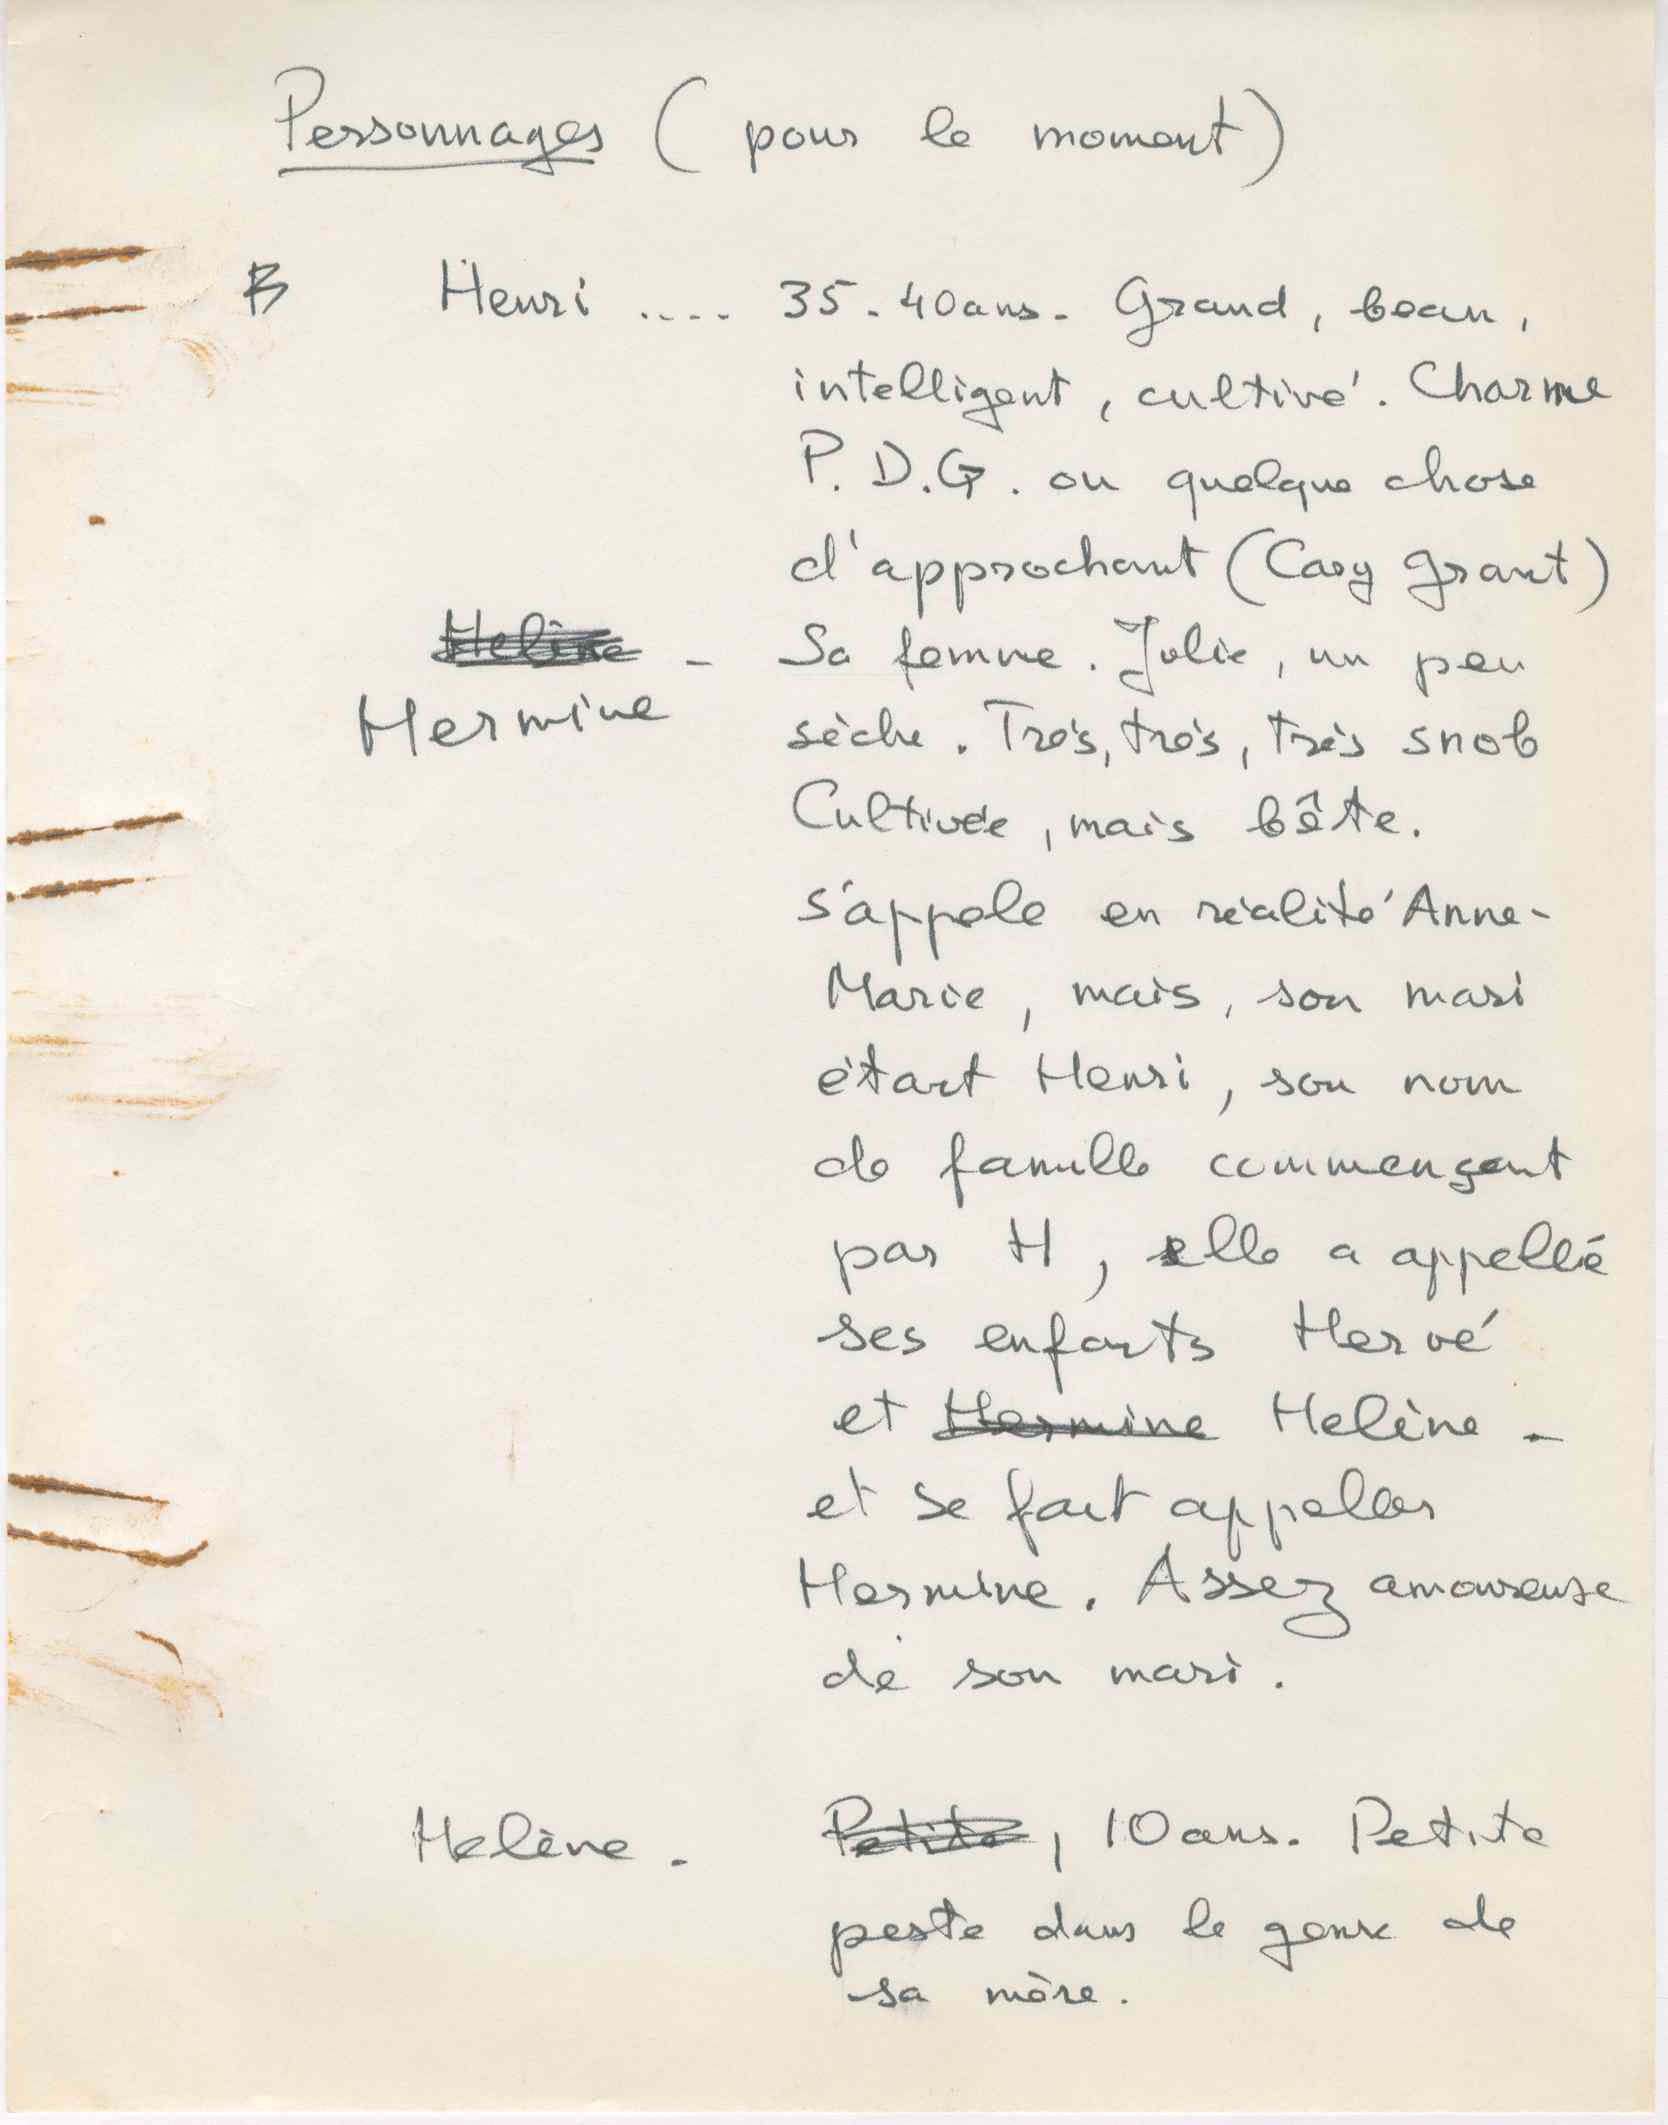 Personnages (pour le moment)
B Henri .... 35-40ans. Grand, beau,
intelligent, cultivé. Charme
P.D.G. ou quelque chose
d'approchant (Cary Grant)
Helène - Sa femme. Jolie, un peu
Hermine sèche. Très, très, très snob
Cultivée, mais bête.
s'appele en réalité Anne-
Marie, mais, son mari
étant Henri, son nom
de famille commençant
par H, elle a appellé
ses enfants Hervé
et Hermine Helène -
et se fait appeller
Hermine. Assez amoureuse
de son mari.
Helène - Petite, 10 ans. Petite
peste dans le genre de
sa mère.